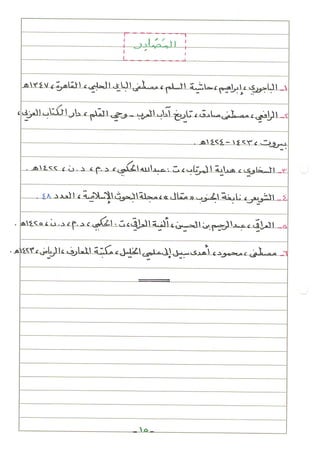 المصادر
١- الباجوري، إبراهيم، حاشية السلم، مصطفى البابي الحلبي، القاهرة، ١٣٤٧هـ
٢- الرافعي، مصطفى صادق، تاريخ آداب العرب - وحي القلم، دار الكتاب العربي،
بيروت، ١٤٢٣-١٤٢٤هـ.
٣- السخاوي، هداية المرتاب، ت: عبدالله الحكمي، د.م، د.ن، ١٤٢٢هـ.
٤- الشويعر، نابغة الجنوب «مقال»، مجلة البحوث الإسلامية، العدد ٤٨.
٥- العراقي، عبدالرحيم بن الحسين، ألفية العراقي، ت: الحكمي، د.م، د.ن، ١٤٢٥هـ.
٦- مصطفى، محمود، أهدى سبيل إلى علمي الخليل، مكتبة المعارف، الرياض، ١٤٢٣هـ.
-١٥-